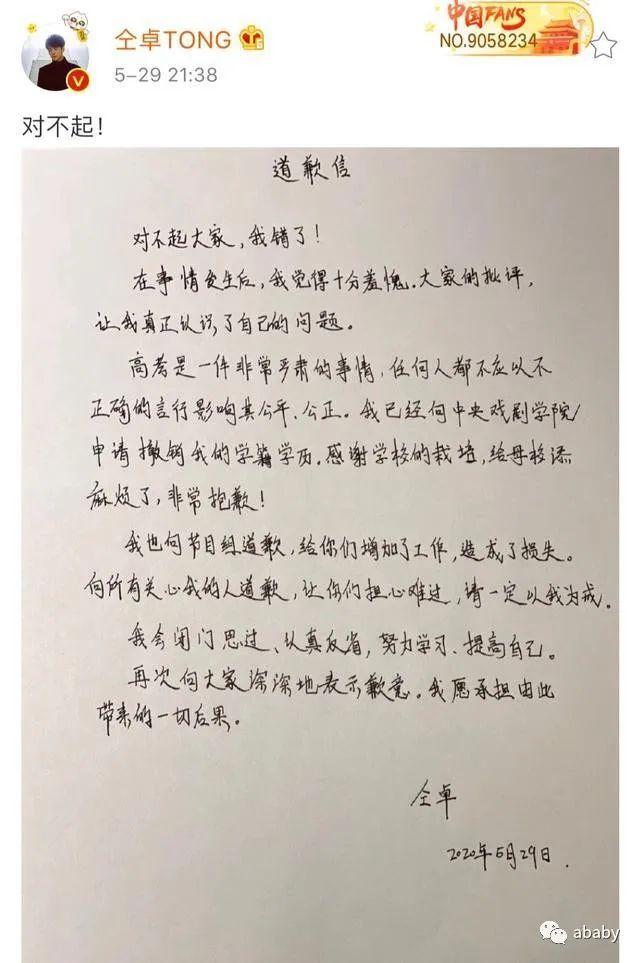 仝卓TONG
5-29 21:38
中国FANS
NO.9058234
对不起!
道歉信
对不起大家,我错了!
在事情发生后,我觉得十分羞愧.大家的批评,
让我真正认识了自己的问题。
高考是一件非常严肃的事情,任何人都不应以不
正确的言行影响其公平、公正。我已经向中央戏剧学院
申请撤销我的学籍学历.感谢学校的栽培,给母校添
麻烦了,非常抱歉!
我也向节目组道歉,给你们增加了工作,造成了损失。
向所有关心我的人道歉,让你们担心难过,请一定以我为戒.
我会闭门思过、认真反省,努力学习、提高自己。
再次向大家深深地表示歉意。我愿承担由此
带来的一切后果。
仝卓
2020年5月29日.
ababy